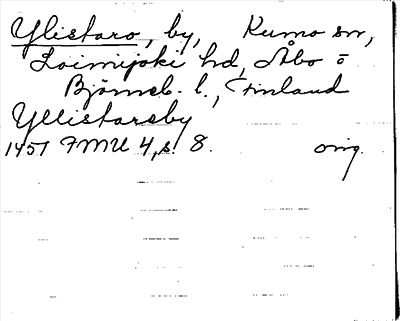 Ylistaro, by, Kumo sn,
Loimijoki hd, Åbo o
Björneb. l., Finland
Yllistarsby
1451 FMU 4, s. 8. orig.